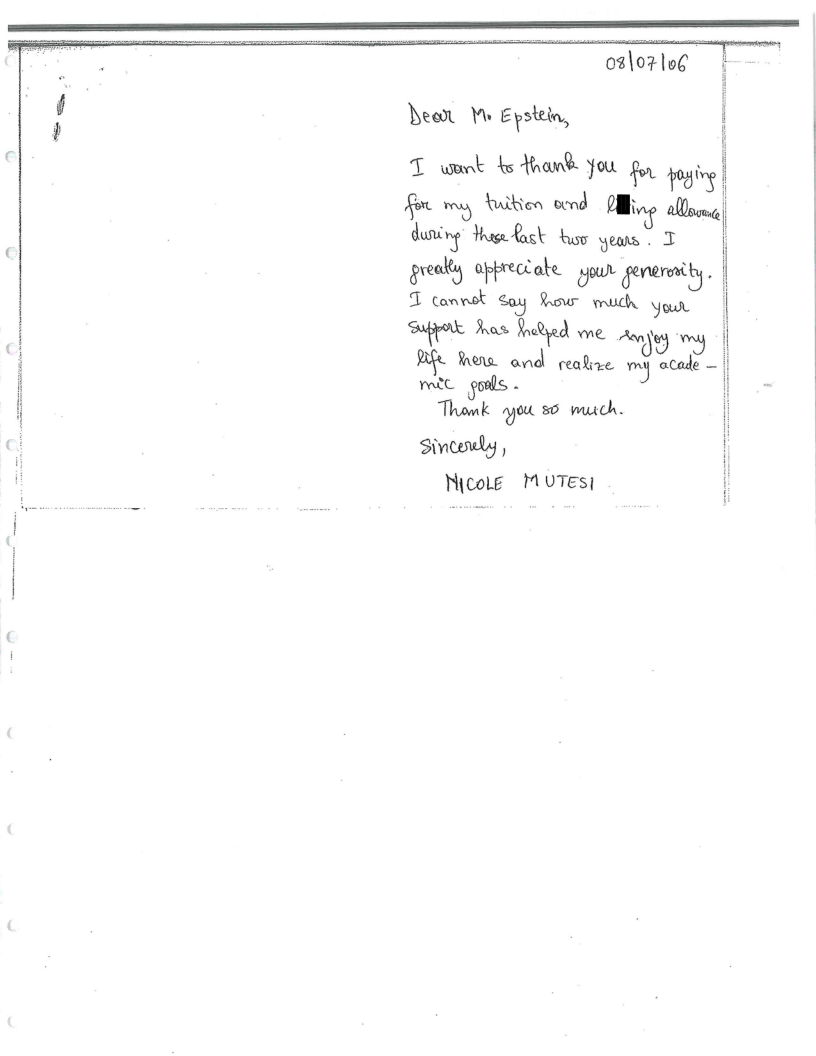 08/07/06
Dear M. Epstein,
I want to thank you for paying
for my tuition and l ing allowance
during these last two years. I
greatly appreciate your generosity.
I cannot say how much your
support has helped me enjoy my
life here and realize my acade-
mic goals.
Thank you so much.
Sincerely,
NICOLE MUTESI